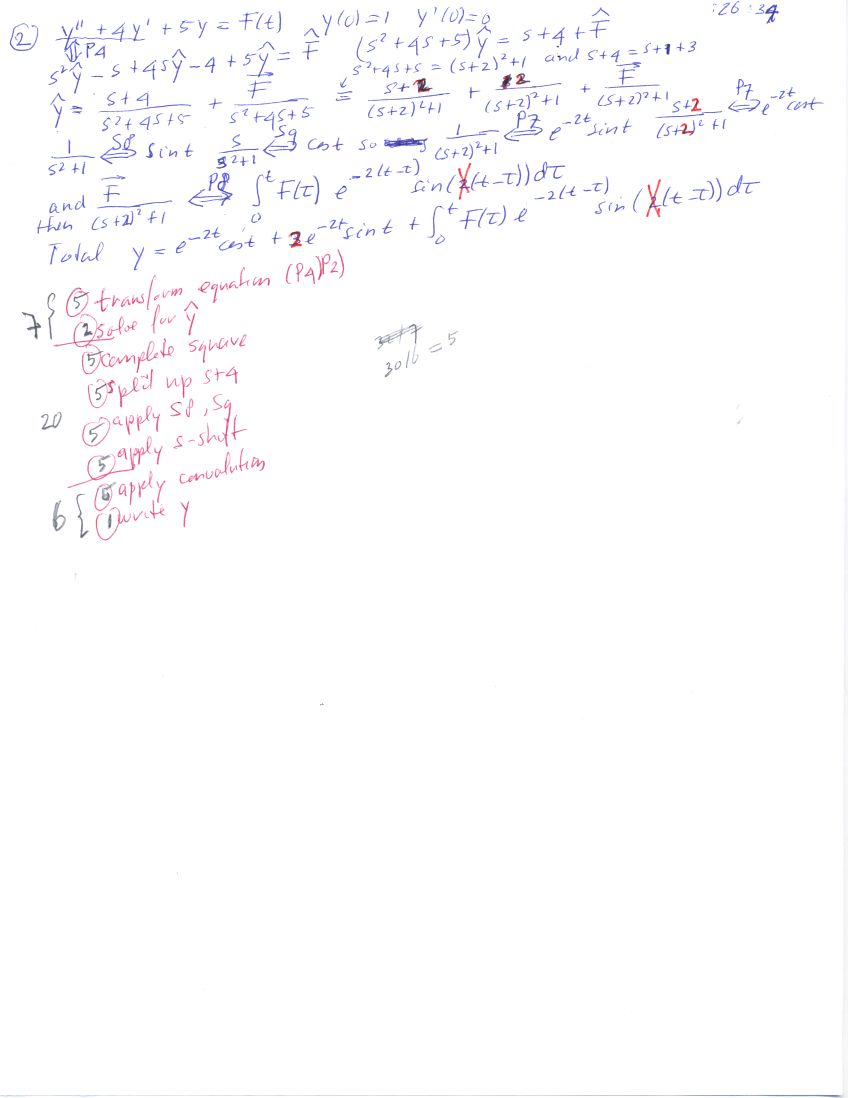 ② y'' + 4y' + 5y = F(t)   y(0)=1   y'(0)=0   :26:34
⇕ P4   (s²+4s+5) ŷ = s+4+F̂
s²ŷ - s + 4sŷ - 4 + 5ŷ = F̂   s²+4s+5 = (s+2)²+1 and s+4 = s+1+3
ŷ = (s+4)/(s²+4s+5) + F̂/(s²+4s+5) = (s+2)/((s+2)²+1) + 2/((s+2)²+1) + F̂/((s+2)²+1)
1/(s²+1) ⇔ S8 sin t   s/(s²+1) ⇔ S9 cos t so 1/((s+2)²+1) ⇔ P7 e^{-2t} sin t   (s+2)/((s+2)²+1) ⇔ P7 e^{-2t} cos t
and then F̂/((s+2)²+1) ⇔ P8 ∫₀ᵗ F(τ) e^{-2(t-τ)} sin((t-τ)) dτ
Total y = e^{-2t} cos t + 2e^{-2t} sin t + ∫₀ᵗ F(τ) e^{-2(t-τ)} sin((t-τ)) dτ
7 { ⑤ transform equation (P4)P2)
② solve for ŷ
⑤ complete square
⑤ split up s+4
20 ⑤ apply S8, S9
⑤ apply s-shift
⑤ apply convolution
6 { ① write y
30/6 = 5